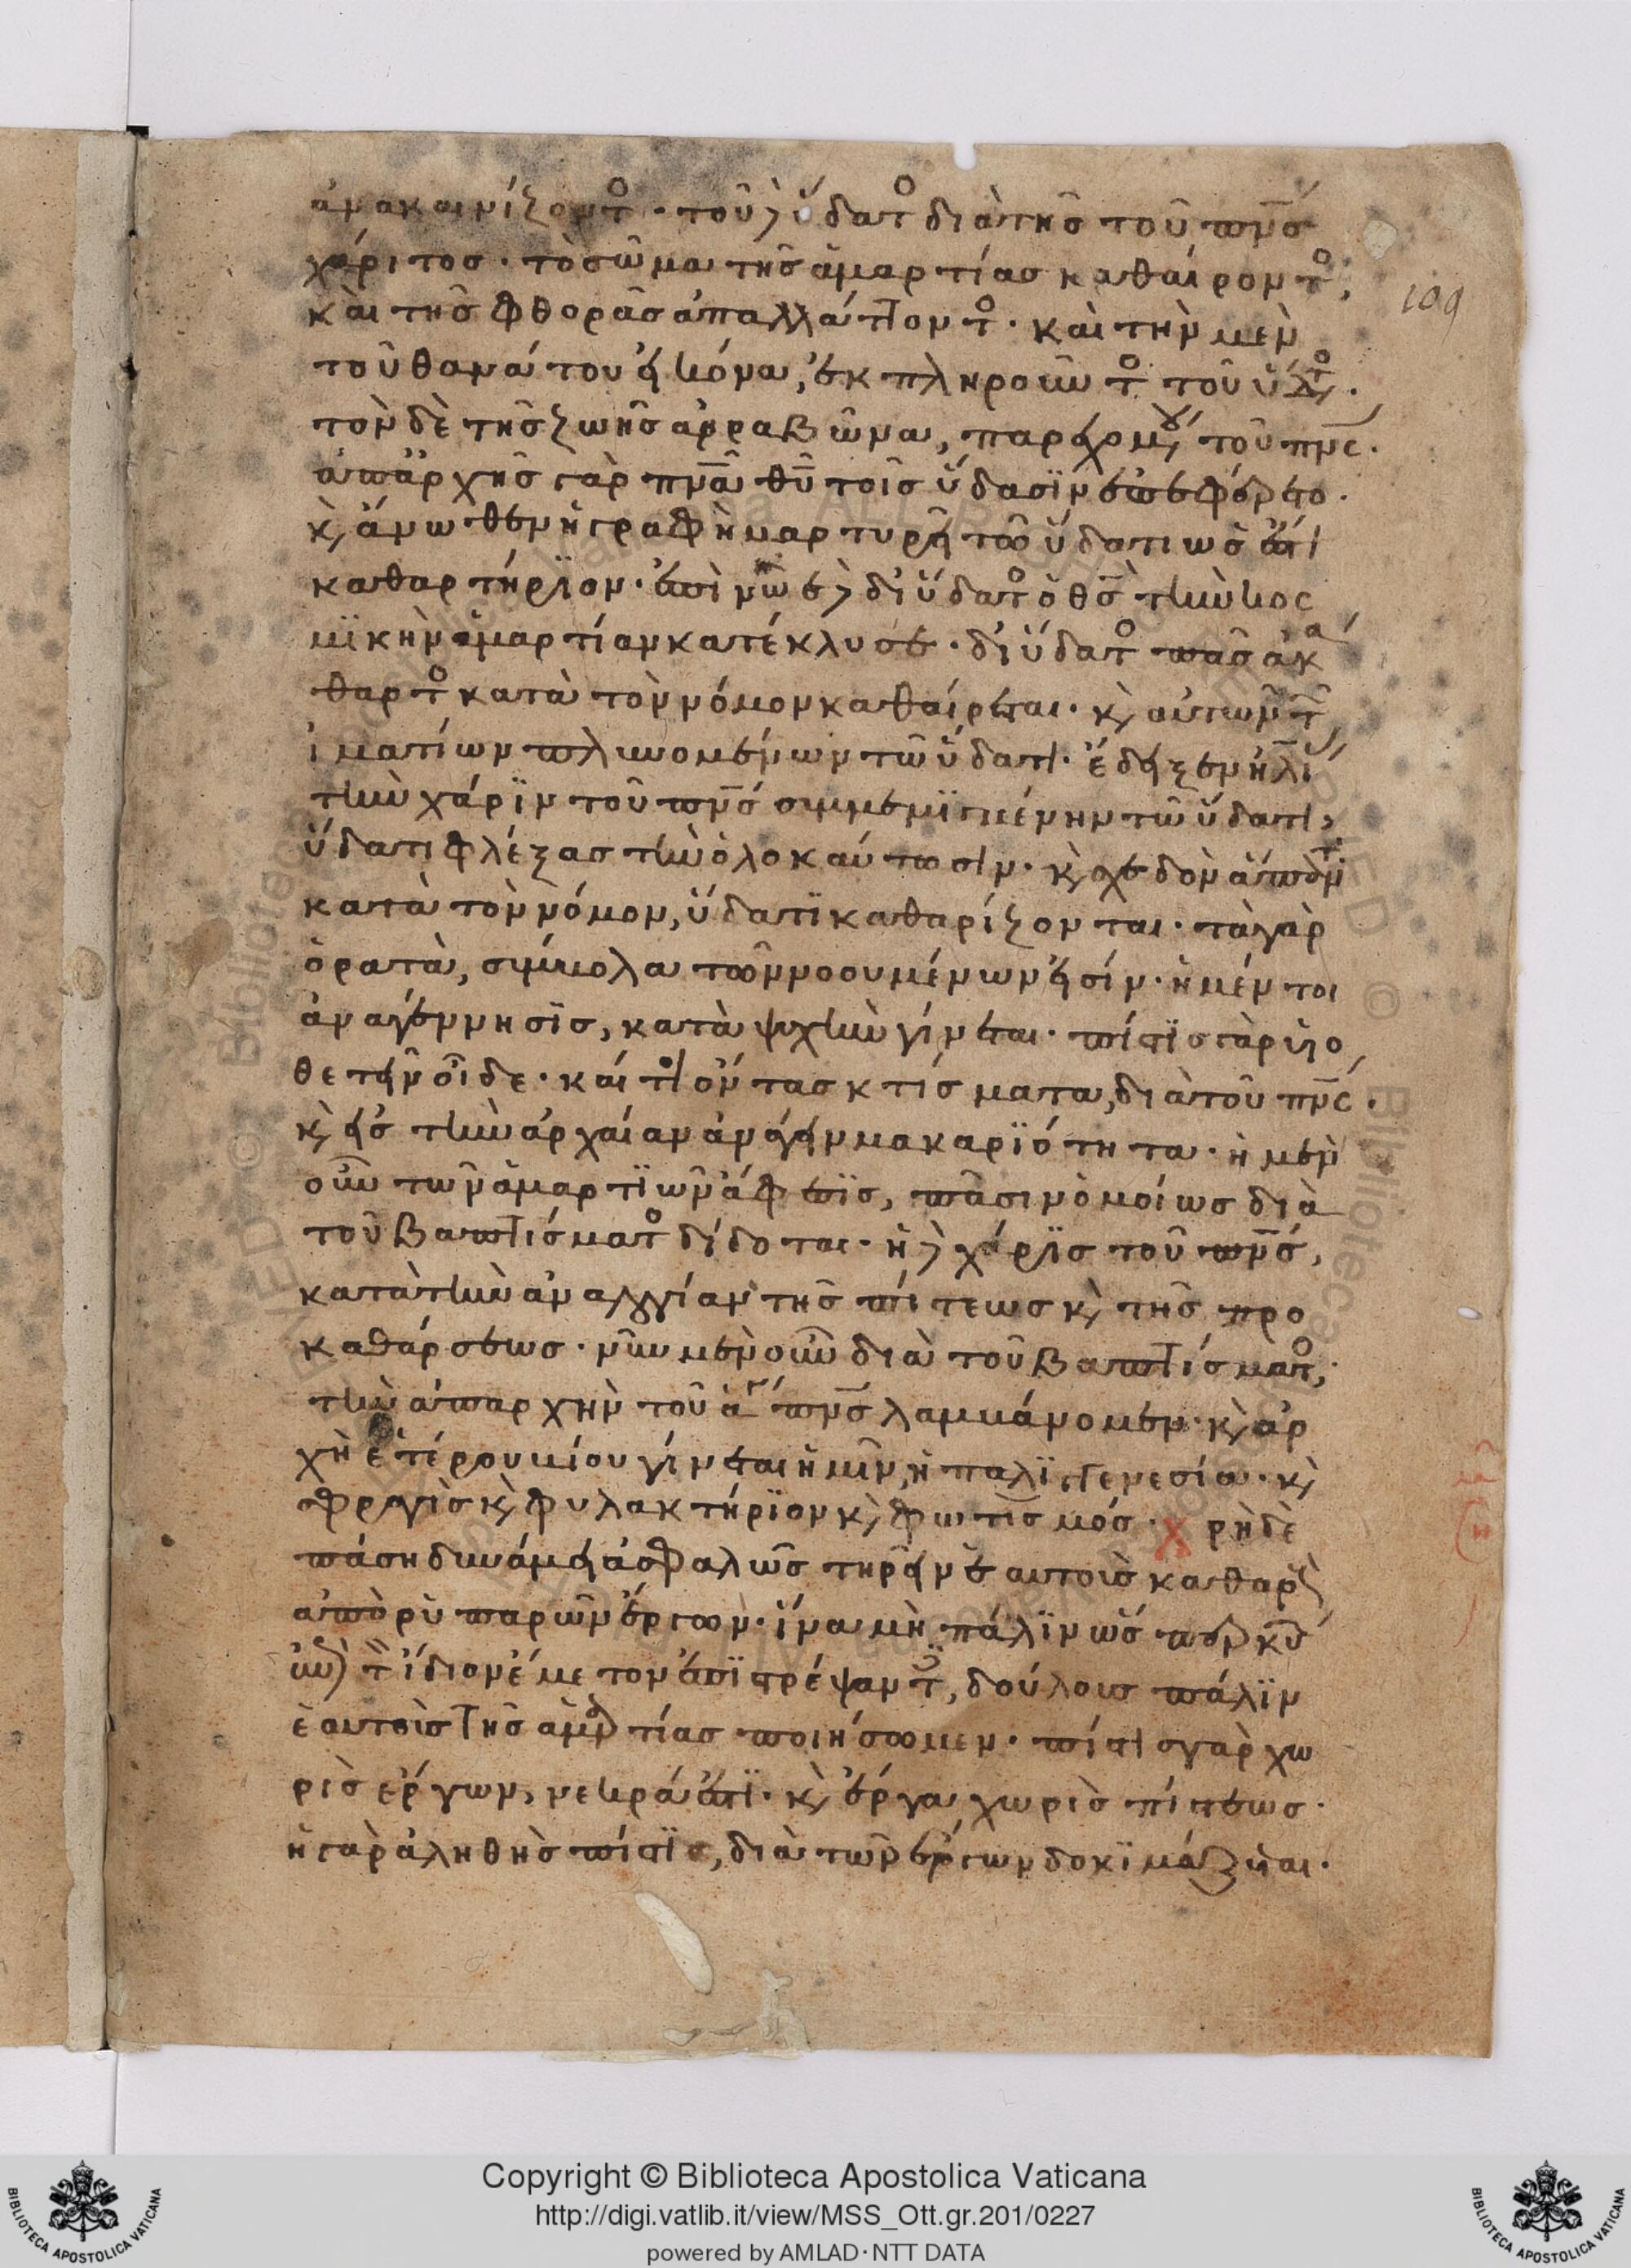 ἀνακαινίζοντος· τοῦ δὲ ὕδατος διὰ τῆς τοῦ πνς
χάριτος· τὸ σῶμα τῆς ἁμαρτίας καθαίροντος,
καὶ τῆς φθορᾶς ἀπαλλάττοντος· καὶ τὴν μὲν
τοῦ θανάτου εἰκόνα, ἐκπληροῦντος τοῦ ὕδατος·
τὸν δὲ τῆς ζωῆς ἀρραβῶνα, παρεχομένου τοῦ πνς·
ἀπαρχῆς γὰρ πνα θυ τοῖς ὕδασιν ἐπεφέρετο·
κ, ἄνωθεν ἡ γραφὴ μαρτυρεῖ τῷ ὕδατι ὡς ἐστὶ
καθαρτήριον· ἐπὶ νῶε δὲ δι' ὕδατος ὁ θς τὴν κοσ
μικὴν ἁμαρτίαν κατέκλυσε· δι' ὕδατος πᾶς ἀκά
θαρτος κατὰ τὸν νόμον καθαίρεται· κ, αὐτῶν τῶν
ἱματίων πλυνομένων τῷ ὕδατι· ἔδειξεν ἡλίας
τὴν χάριν τοῦ πνς συμμεμιγμένην τῷ ὕδατι,
ὕδατι φλέξας τὴν ὁλοκαύτωσιν· κ, σχεδὸν ἅπαντα
κατὰ τὸν νόμον, ὕδατι καθαρίζονται· τὰ γὰρ
ὁρατὰ, σύμβολα τῶν νοουμένων εἰσίν· ἡ μέντοι
ἀναγέννησις, κατὰ ψυχὴν γίνεται· πίστις γὰρ υἱο
θετεῖν οἶδε· καίτοι ὄντας κτίσματα, διὰ τοῦ πνς·
κ, εἰς τὴν ἀρχαίαν ἀνάγειν μακαριότητα· ἡ μὲν
οὖν τῶν ἁμαρτιῶν ἄφεσις, πᾶσιν ὁμοίως διὰ
τοῦ βαπτίσματος δίδοται· ἡ δὲ χάρις τοῦ πνς,
κατὰ τὴν ἀναλογίαν τῆς πίστεως κ, τῆς προ
καθάρσεως· νῦν μὲν οὖν διὰ τοῦ βαπτίσματος,
τὴν ἀπαρχὴν τοῦ ἁγίου πνς λαμβάνομεν· κ, ἀρ
χὴ ἑτέρου βίου γίνεται ἡμῖν, ἡ παλιγγενεσία· κ,
σφραγὶς κ, φυλακτήριον κ, φωτισμός· χρὴ δὲ
πάσῃ δυνάμει ἀσφαλῶς τηρεῖν ἑαυτοὺς καθαροὺς
ἀπὸ ῥυπαρῶν ἔργων· ἵνα μὴ πάλιν ὡς περ κύ
ων ἐπὶ τὸν ἴδιον ἔμετον ἐπιστρέψαντες, δούλους πάλιν
ἑαυτοὺς τῆς ἁμαρτίας ποιήσωμεν· πίστις γὰρ χω
ρὶς ἔργων, νεκρά ἐστι· κ, ἔργα χωρὶς πίστεως·
ἡ γὰρ ἀληθὴς πίστις, διὰ τῶν ἔργων δοκιμάζεται·
109
Copyright © Biblioteca Apostolica Vaticana
http://digi.vatlib.it/view/MSS_Ott.gr.201/0227
powered by AMLAD·NTT DATA
BIBLIOTECA APOSTOLICA VATICANA
BIBLIOTECA APOSTOLICA VATICANA